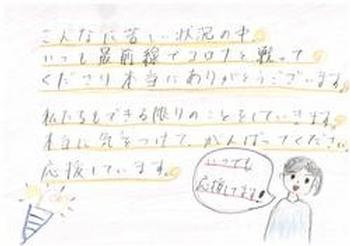 こんなに苦しい状況の中、
いつも最前線でコロナと戦って
くださり本当にありがとうございます。
私たちもできる限りのことをしていきます。
本当に気をつけて、がんばってください。
応援しています。
いつでも
応援してます!